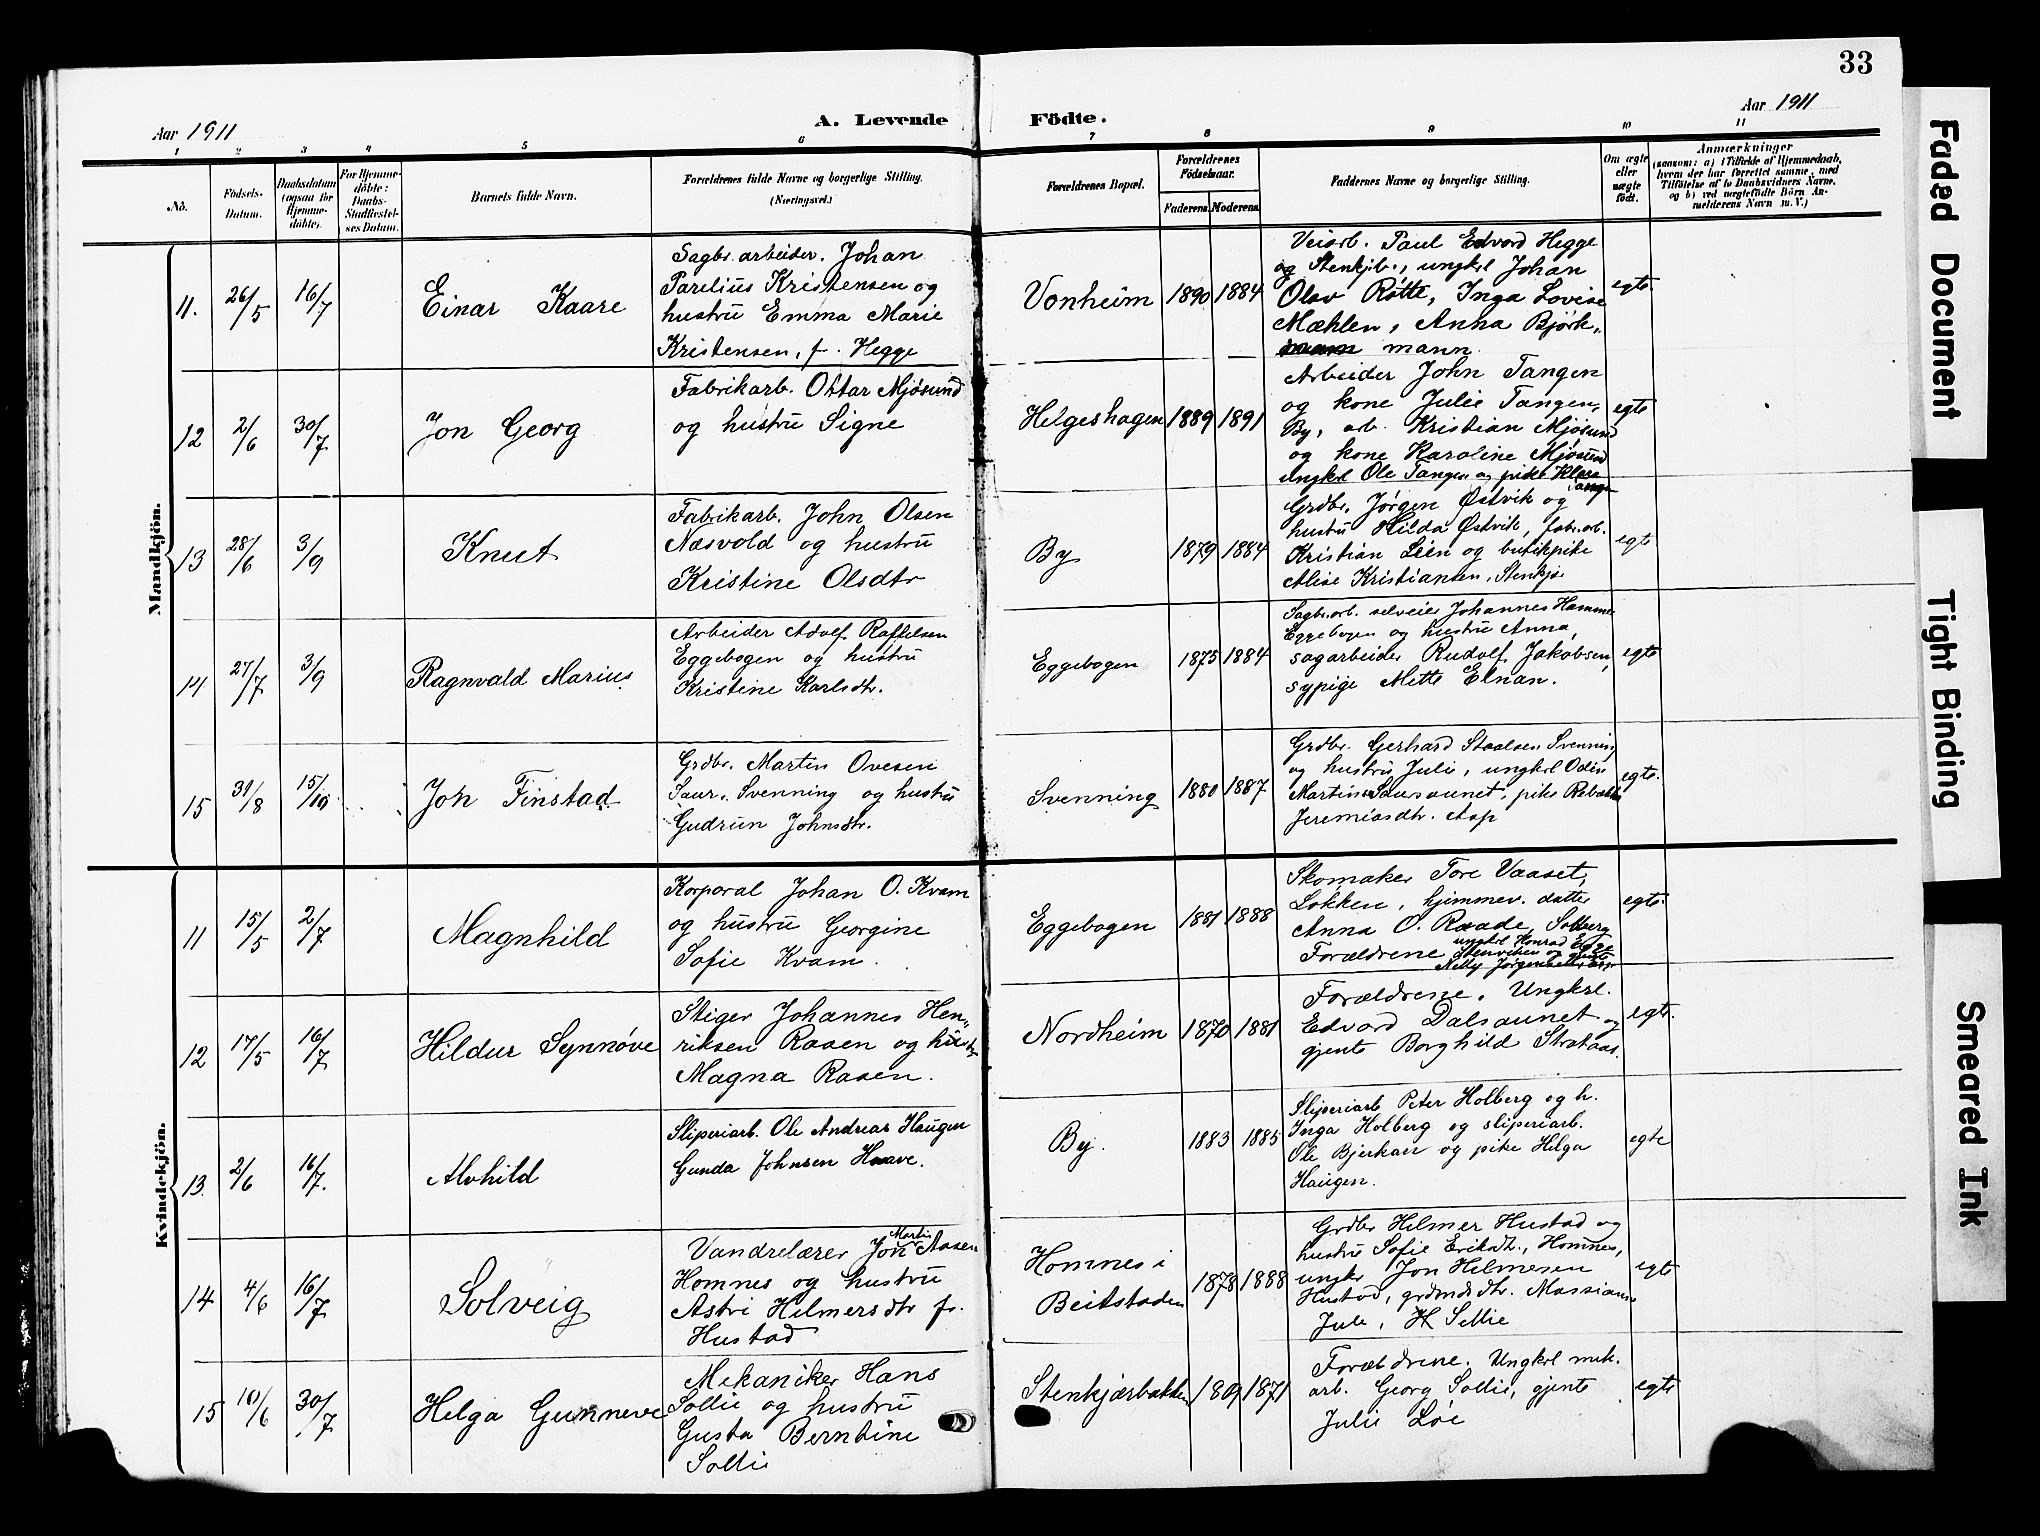 33
Aar 1911
A. Levende Födte.
Aar 1911
1 2 3 4 5 6 7 8 9 10 11
No.
Födsels-
Datum.
Daabsdatum
(ogsaa for
Hjemme-
döbte).
For Hjemme-
döbte:
Daabs-
Stadfæstel-
ses Datum.
Barnets fulde Navn.
Forældrenes fulde Navne og borgerlige Stilling.
(Næringsvei.)
Forældrenes Bopæl.
Forældrenes
Födselsaar.
Faderens. Moderens.
Faddernes Navne og borgerlige Stilling.
Om ægte
eller
uægte
født.
Anmærkninger
(saasom: a) i Tilfælde af Hjemmedaab,
hvem der har forrettet samme, med
Tilföielse af to Daabsvidners Navne,
og b) ved uægtefödte Börn An-
melderens Navn m. V.)
Mandkjön.
11. 26/5 16/7
Einar Kaare
Sagbr. arbeider. Johan
Parelius Kristensen og
hustru Emma Marie
Kristensen, f. Hegge
Vonheim 1890 1884
Veiarb. Paul Edvard Hegge
og Stenkjb., ungkrl Johan
Olav Røtte, Inga Lovise
Mæhlen, Anna Bjørk-
mann
egte
12 2/6 30/7
Jon Georg
Fabrikarb. Ottar Mjøsund
og hustru Signe
Helgeshagen 1889 1891
Arbeider John Tangen
og kone Julie Tangen,
By, arb. Kristian Mjøsund
og kone Karoline Mjøsund
ungkrl Ole Tangen og pike Klara
Tangen
egte
13 28/6 3/9
Knut
Fabrikarb. John Olsen
Næsvold og hustru
Kristine Olsdtr
By 1879 1884
Grdbr. Jørgen Østvik og
hustru Hilda Østvik, fabr.arb.
Kristian Leen og butikpike
Alise Kristiansen, Stenkjær
egte
14 27/7 3/9
Ragnvald Marius
Arbeider Adolf Roffelsen
Eggebogen og hustru
Kristine Karlsdtr.
Eggebogen 1875 1884
Sagbr.arb. selveier Johannes Hammer
Eggebogen og hustru Anna,
sagarbeider Rudolf Jakobsen,
sypige Mette Elnan.
egte
15 31/8 15/10
Joh Finstad
Grdbr. Martin Ovesen
Saur, Svenning og hustru
Gudrun Johnsdtr.
Svenning 1880 1887
Grdbr. Gerhard Staalsen Svenning
og hustru Julie, ungkrl Odin
Martinus Saursaunet, pike Rebekka
Jeremiasdtr. Asp
egte.
Kvindekjön.
11 15/5 2/7
Magnhild
Korporal Johan O. Kvam
og hustru Georgine
Sofie Kvam.
Eggebogen 1881 1888
Skomaker Tore Vaaset,
Løkken, hjemmev. datter
Anna O. Raade, Solberg
Forældrene ungkrl Konrad Egge
Stenviken og gjente
Nelly Jørgensen, Egge
egte.
12 17/5 16/7
Hildur Synnøve
Stiger Johannes Hen-
riksen Rasen og hustr
Magna Rasen.
Nordheim 1870 1881
Forældrene, Ungkrl.
Edvard Dalsaunet og
gjente Borghild Strataas.
egte.
13. 2/6 16/7.
Alvhild
Sliperiarb. Ole Andreas Haugen
Gunda Johnsen Haave.
By. 1883 1885
Sliperiarb Peter Holberg og h.
Inga Holberg og sliperiarb.
Ole Bjerkan og pike Helga
Haugen.
egte
14 4/6 16/7
Solveig
Vandrelærer Jon Martin Aasen
Homnes og hustru
Astri Hilmersdtr f.
Hustad
Homnes i
Beitstaden 1878 1888
Grdbr Hilmer Hustad og
hustru Sofie Eriksdtr., Homnes,
ungkr Jon Hilmersen
Hustad, grdmdsdtr. Massianne
Jule, H Sellie
egte
15 10/6 30/7
Helga Gunneve
Mekaniker Hans
Sollie og hustru
Gusta Berntine
Sollie
Stenkjærbakken 1869 1871
Forældrene. Ungkrl mek.
arb. Georg Sollie, gjente
Julie Løe
egte
Faded Document
Tight Binding
Smeared Ink